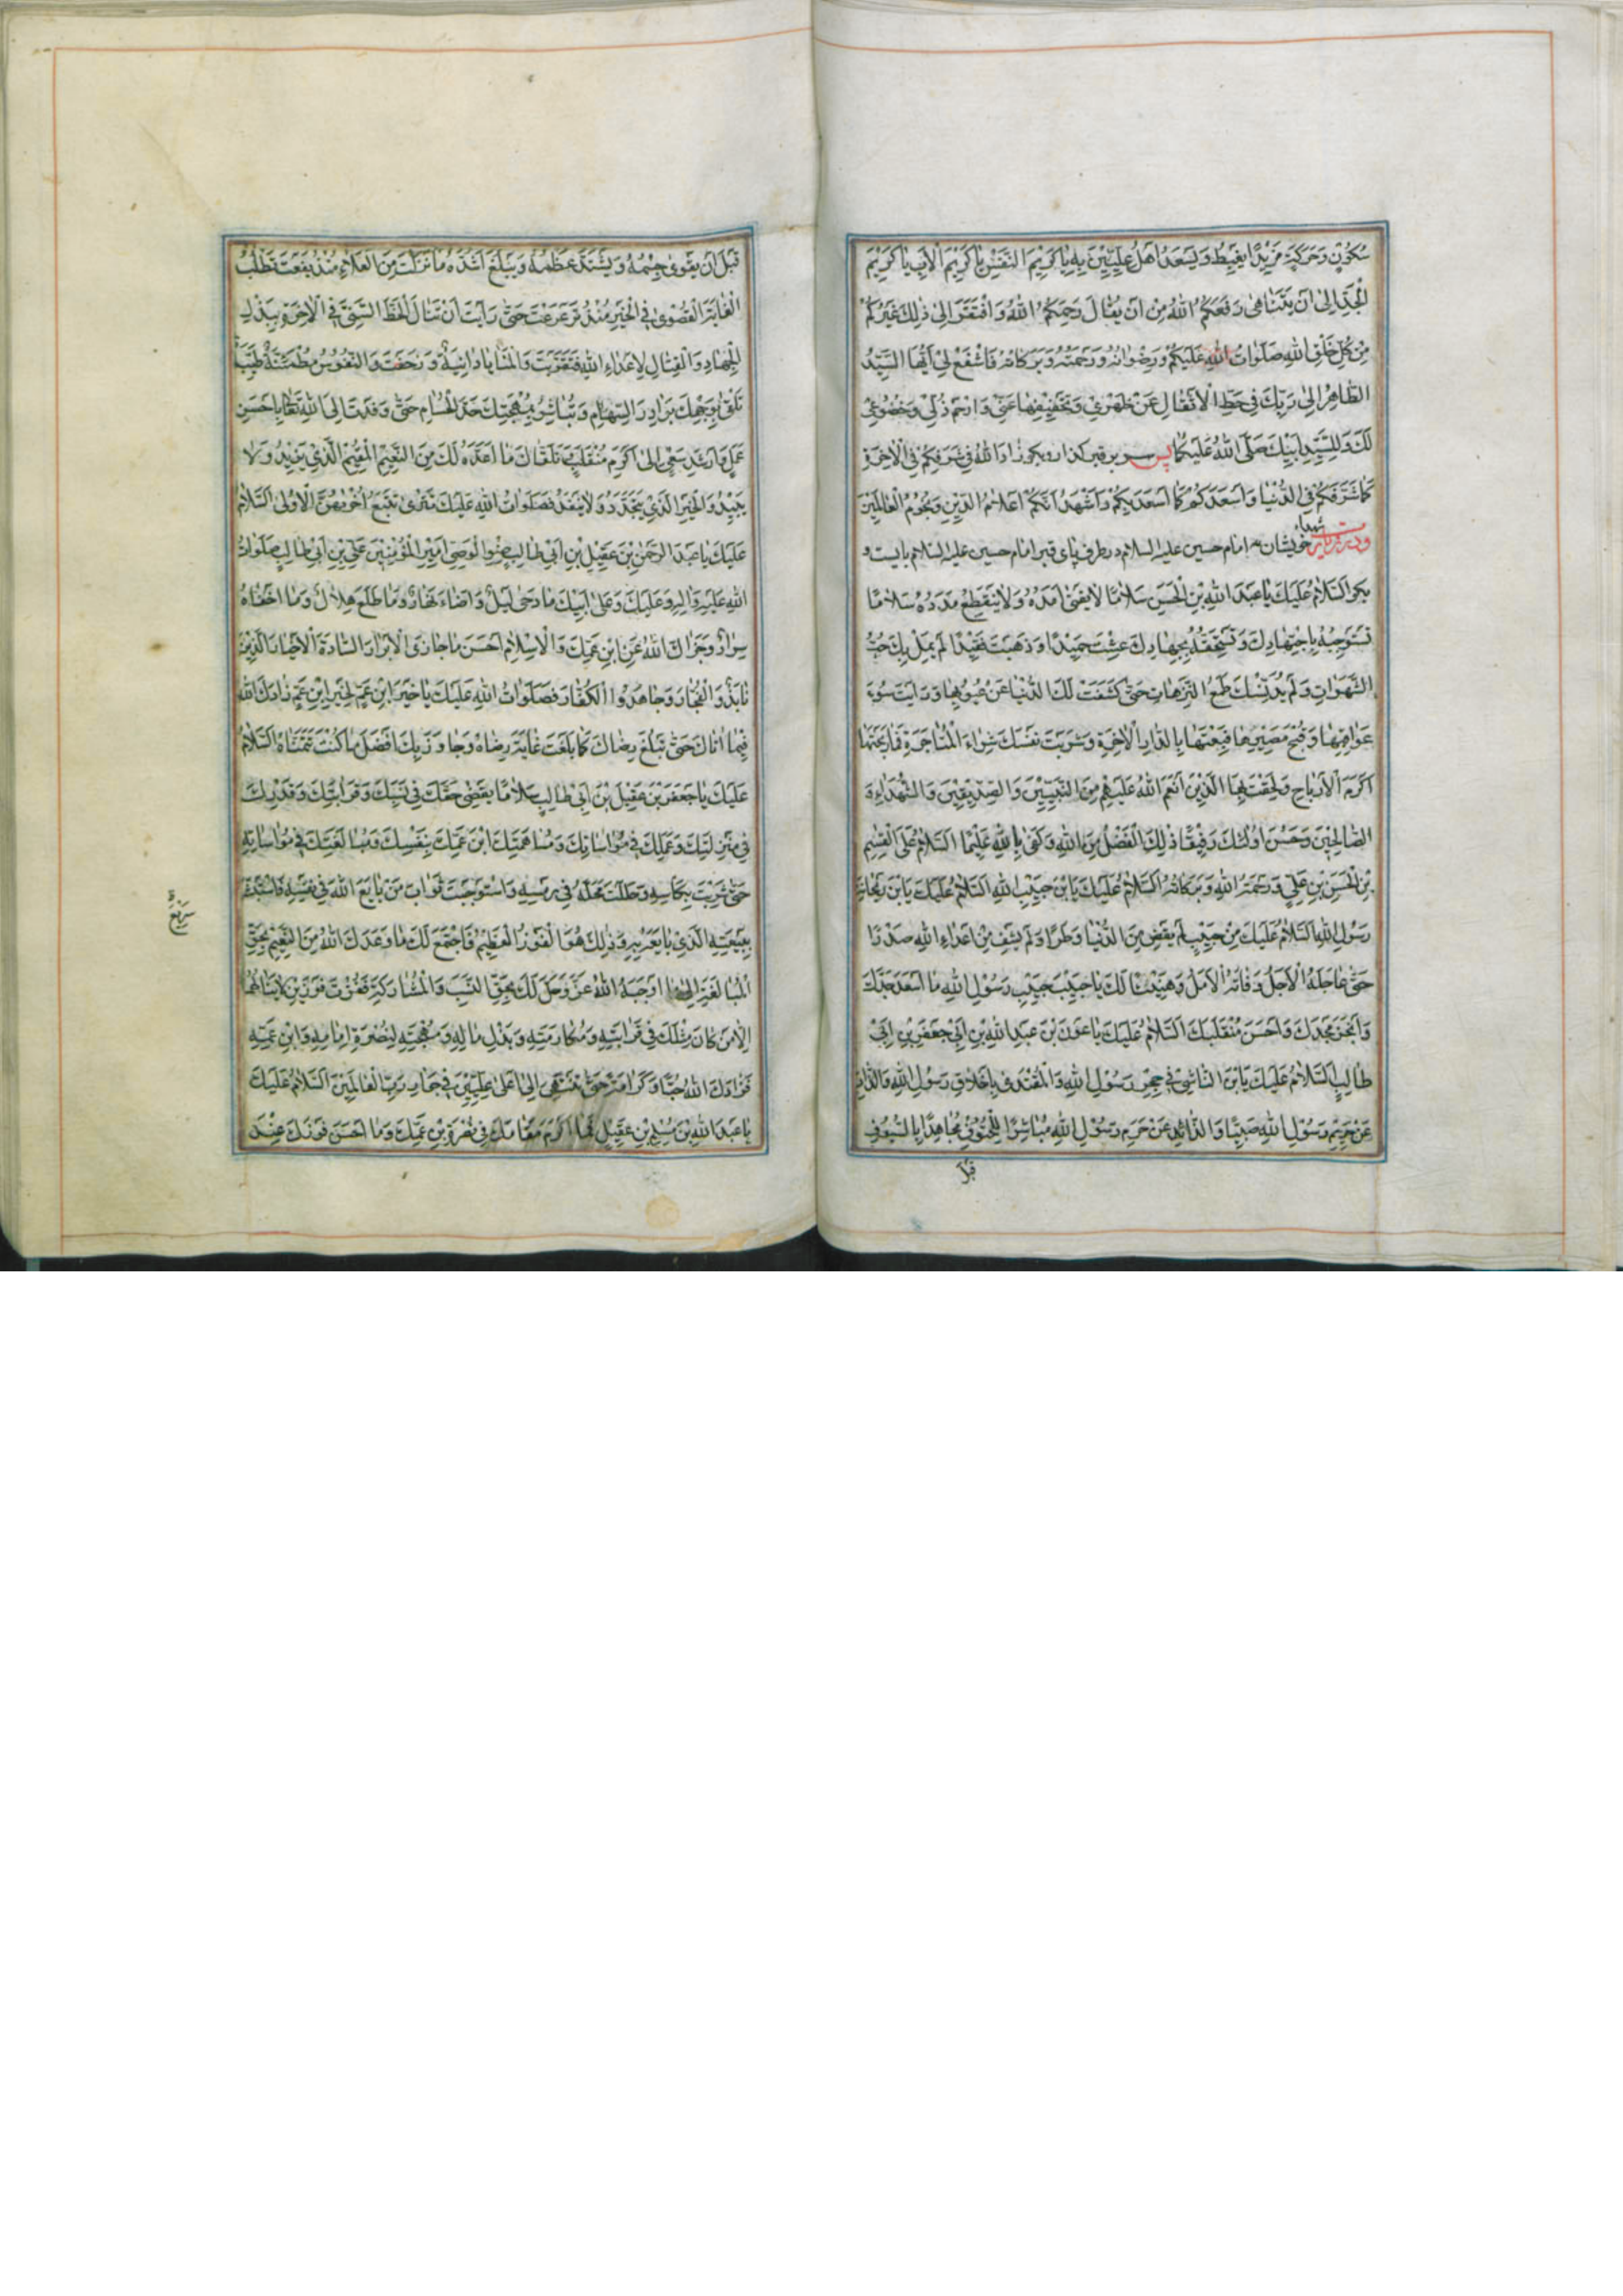 سُكُوْنٍ وَحَرَكَةٍ مَزِيْدًا يَغْبِطُ وَيَسْعَدُ اَهْلُ عِلِّيِّيْنَ بِهِ يَا كَرِيْمَ النَّفْسِ يَا كَرِيْمَ الْاَبِ يَا كَرِيْمَ
الْجَدِّ اِلىٰ اَنْ يَتَنَاهىٰ رَفَعَكُمُ اللهُ مِنْ اَنْ يُقَالَ رَحِمَكُمُ اللهُ وَافْتَقَرَ اِلىٰ ذٰلِكَ غَيْرُكُمْ
مِنْ كُلِّ خَلْقِ اللهِ صَلَوَاتُ اللهِ عَلَيْكُمْ وَرِضْوَانُهُ وَرَحْمَتُهُ وَبَرَكَاتُهُ فَاشْفَعْ لِيْ اَيُّهَا السَّيِّدُ
الطَّاهِرُ اِلىٰ رَبِّكَ فِي حَطِّ الْاَثْقَالِ عَنْ ظَهْرِيْ وَتَخْفِيْفِهَا عَنِّيْ وَارْحَمْ ذُلِّيْ وَخُضُوْعِيْ
لَكَ وَلِلسَّيِّدِ اَبِيْكَ صَلَّى اللهُ عَلَيْكُمَا پس سر بر قبر كذار و بكو زَادَ اللهُ فِيْ شَرَفِكُمْ فِي الْاٰخِرَةِ
كَمَا شَرَّفَكُمْ فِي الدُّنْيَا وَاَسْعَدَكُمْ كَمَا اَسْعَدَ بِكُمْ وَاَشْهَدُ اَنَّكُمْ اَعْلَامُ الدِّيْنِ وَنُجُوْمُ الْعَالَمِيْنَ
شهداء خويشان امام حسين عليه السلام در طرف پاى قبر امام حسين عليه السلام بايست و
بكو اَلسَّلَامُ عَلَيْكَ يَا عَبْدَ اللهِ بْنَ الْحَسَنِ سَلَامًا لَا يَفْنىٰ اَمَدُهُ وَلَا يَنْقَطِعُ مَدَدُهُ سَلَامًا
تَسْتَوْجِبُهُ بِاجْتِهَادِكَ وَتَسْتَحِقُّهُ بِجِهَادِكَ عِشْتَ حَمِيْدًا وَذَهَبْتَ فَقِيْدًا لَمْ يَمِلْ بِكَ حُبُّ
الشَّهَوَاتِ وَلَمْ يُدَنِّسْكَ طَمَعُ النَّزَهَاتِ حَتّٰى كَشَفَتْ لَكَ الدُّنْيَا عَنْ عُيُوْبِهَا وَرَاَيْتَ سُوْءَ
عَوَاقِبِهَا وَقُبْحَ مَصِيْرِهَا فَبِعْتَهَا بِالدَّارِ الْاٰخِرَةِ وَشَرَيْتَ نَفْسَكَ شِرَاءَ الْمُتَاجَرَةِ فَاَرْبَحْتَهَا
اَكْرَمَ الْاَرْبَاحِ وَلَحِقْتَ بِهَا الَّذِيْنَ اَنْعَمَ اللهُ عَلَيْهِمْ مِنَ النَّبِيِّيْنَ وَالصِّدِّيْقِيْنَ وَالشُّهَدَاءِ وَ
الصَّالِحِيْنَ وَحَسُنَ اُولٰئِكَ رَفِيْقًا ذٰلِكَ الْفَضْلُ مِنَ اللهِ وَكَفىٰ بِاللهِ عَلِيْمًا اَلسَّلَامُ عَلَى الْقَاسِمِ
بْنِ الْحَسَنِ بْنِ عَلِيٍّ وَرَحْمَةُ اللهِ وَبَرَكَاتُهُ اَلسَّلَامُ عَلَيْكَ يَابْنَ حَبِيْبِ اللهِ اَلسَّلَامُ عَلَيْكَ يَابْنَ رَيْحَانَةِ
رَسُوْلِ اللهِ اَلسَّلَامُ عَلَيْكَ مِنْ حَبِيْبٍ لَمْ يَقْضِ مِنَ الدُّنْيَا وَطَرًا وَلَمْ يَشْفِ مِنْ اَعْدَاءِ اللهِ صَدْرًا
حَتّٰى عَاجَلَهُ الْاَجَلُ وَفَاتَهُ الْاَمَلُ وَهَنِيْئًا لَكَ يَا حَبِيْبَ حَبِيْبِ رَسُوْلِ اللهِ مَا اَسْعَدَ جَدَّكَ
وَاَفْخَرَ مَجْدَكَ وَاَحْسَنَ مُنْقَلَبَكَ اَلسَّلَامُ عَلَيْكَ يَا عَوْنَ بْنَ عَبْدِ اللهِ بْنِ اَبِيْ جَعْفَرِ بْنِ اَبِيْ
طَالِبٍ اَلسَّلَامُ عَلَيْكَ يَابْنَ النَّاشِئِ فِيْ حِجْرِ رَسُوْلِ اللهِ وَالْمُقْتَدِيْ بِاَخْلَاقِ رَسُوْلِ اللهِ وَالذَّابِّ
عَنْ حَرِيْمِ رَسُوْلِ اللهِ صَبِيًّا وَالذَّائِدِ عَنْ حَرَمِ رَسُوْلِ اللهِ مُبَاشِرًا لِلْحُتُوْفِ مُجَاهِدًا بِالسُّيُوْفِ
قَبْلَ
قَبْلَ اَنْ يَقْوىٰ جِسْمُهُ وَيَشْتَدَّ عَظْمُهُ وَيَبْلُغَ اَشُدَّهُ مَا زِلْتَ مِنَ الْعَلَاءِ مُنْذُ يَفَعْتَ تَطْلُبُ
الْغَايَةَ الْقُصْوىٰ فِي الْخَيْرِ مُنْذُ تَرَعْرَعْتَ حَتّٰى رَاَيْتَ اَنْ تَنَالَ الْحَظَّ السَّنِيَّ فِي الْاٰخِرَةِ بِبَذْلِ
الْجِهَادِ وَالْقِتَالِ لِاَعْدَاءِ اللهِ فَتَقَرَّبْتَ وَالْمَنَايَا دَانِيَةٌ وَزَحَفْتَ وَالنُّفُوْسُ مُطْمَئِنَّةٌ طَيِّبَةٌ
تَلْقىٰ بِوَجْهِكَ بَوَادِرَ السِّهَامِ وَتُبَاشِرُ بِمُهْجَتِكَ حَدَّ الْحُسَامِ حَتّٰى وَفَدْتَ اِلَى اللهِ تَعَالىٰ بِاَحْسَنِ
عَمَلٍ وَاَرْشَدِ سَعْيٍ اِلىٰ اَكْرَمِ مُنْقَلَبٍ وَتَلَقَّاكَ مَا اَعَدَّهُ لَكَ مِنَ النَّعِيْمِ الْمُقِيْمِ الَّذِيْ يَزِيْدُ وَلَا
يَبِيْدُ وَالْخَيْرِ الَّذِيْ يَتَجَدَّدُ وَلَا يَنْفَدُ فَصَلَوَاتُ اللهِ عَلَيْكَ تَتْرىٰ تَتْبَعُ اُخْرٰهُنَّ الْاُوْلىٰ اَلسَّلَامُ
عَلَيْكَ يَا عَبْدَ الرَّحْمٰنِ بْنَ عَقِيْلِ بْنِ اَبِيْ طَالِبٍ صِنْوِ الْوَصِيِّ اَمِيْرِ الْمُؤْمِنِيْنَ عَلِيِّ بْنِ اَبِيْ طَالِبٍ صَلَوَاتُ
اللهِ عَلَيْهِ وَاٰلِهِ وَعَلَيْكَ وَعَلىٰ اَبِيْكَ مَا دَجىٰ لَيْلٌ وَاَضَاءَ نَهَارٌ وَمَا طَلَعَ هِلَالٌ وَمَا اَخْفَاهُ
سِرَارٌ وَجَزَاكَ اللهُ عَنِ ابْنِ عَمِّكَ وَالْاِسْلَامِ اَحْسَنَ مَا جَازَى الْاَبْرَارَ السَّادَةَ الْاَخْيَارَ الَّذِيْنَ
نَابَذُوا الْفُجَّارَ وَجَاهَدُوا الْكُفَّارَ فَصَلَوَاتُ اللهِ عَلَيْكَ يَا خَيْرَ ابْنِ عَمٍّ لِخَيْرِ ابْنِ عَمٍّ زَادَكَ اللهُ
فِيْمَا اٰتَاكَ حَتّٰى تَبْلُغَ رِضَاكَ كَمَا بَلَغْتَ غَايَةَ رِضَاهُ وَجَاوَزَ بِكَ اَفْضَلَ مَا كُنْتَ تَتَمَنَّاهُ اَلسَّلَامُ
عَلَيْكَ يَا جَعْفَرَ بْنَ عَقِيْلِ بْنِ اَبِيْ طَالِبٍ سَلَامًا يَقْضِيْ حَقَّكَ فِيْ نَسَبِكَ وَقَرَابَتِكَ وَقَدْرَكَ
فِيْ مَنْزِلَتِكَ وَعَمَلِكَ فِيْ مُوَاسَاتِكَ وَمُسَاهَمَتِكَ ابْنَ عَمِّكَ بِنَفْسِكَ وَمُبَالَغَتِكَ فِيْ مُوَاسَاتِهِ
حَتّٰى شَرِبْتَ بِكَاْسِهِ وَحَلَلْتَ مَحَلَّهُ فِيْ رَمْسِهِ وَاسْتَوْجَبْتَ ثَوَابَ مَنْ بَايَعَ اللهَ فِيْ نَفْسِهِ فَاسْتَبْشَرَ
بِبَيْعَتِهِ الَّذِيْ بَايَعَ بِهِ وَذٰلِكَ هُوَ الْفَوْزُ الْعَظِيْمُ فَاجْتَمَعَ لَكَ مَا وَعَدَكَ اللهُ مِنَ النَّعِيْمِ بِحَقِّ
الْمُبَالَغَةِ اِلىٰ مَا اَوْجَبَهُ اللهُ عَزَّ وَجَلَّ لَكَ بِحَقِّ النَّسَبِ وَالْمُشَارَكَةِ فَفُزْتَ فَوْزَيْنِ لَا يَنَالُهُمَا
اِلَّا مَنْ كَانَ مِثْلَكَ فِيْ قَرَابَتِهِ وَمُكَارَمَتِهِ وَبَذْلِ مَالِهِ وَمُهْجَتِهِ لِنُصْرَةِ اِمَامِهِ وَابْنِ عَمِّهِ
فَزَادَكَ اللهُ حُبًّا وَكَرَامَةً حَتّٰى تَنْتَهِيَ اِلىٰ اَعْلىٰ عِلِّيِّيْنَ فِيْ جِوَارِ رَبِّ الْعَالَمِيْنَ اَلسَّلَامُ عَلَيْكَ
يَا عَبْدَ اللهِ بْنَ مُسْلِمِ بْنِ عَقِيْلٍ فَمَا اَكْرَمَ مَقَامَكَ فِيْ نُصْرَةِ ابْنِ عَمِّكَ وَمَا اَحْسَنَ فَوْزَكَ عِنْدَ